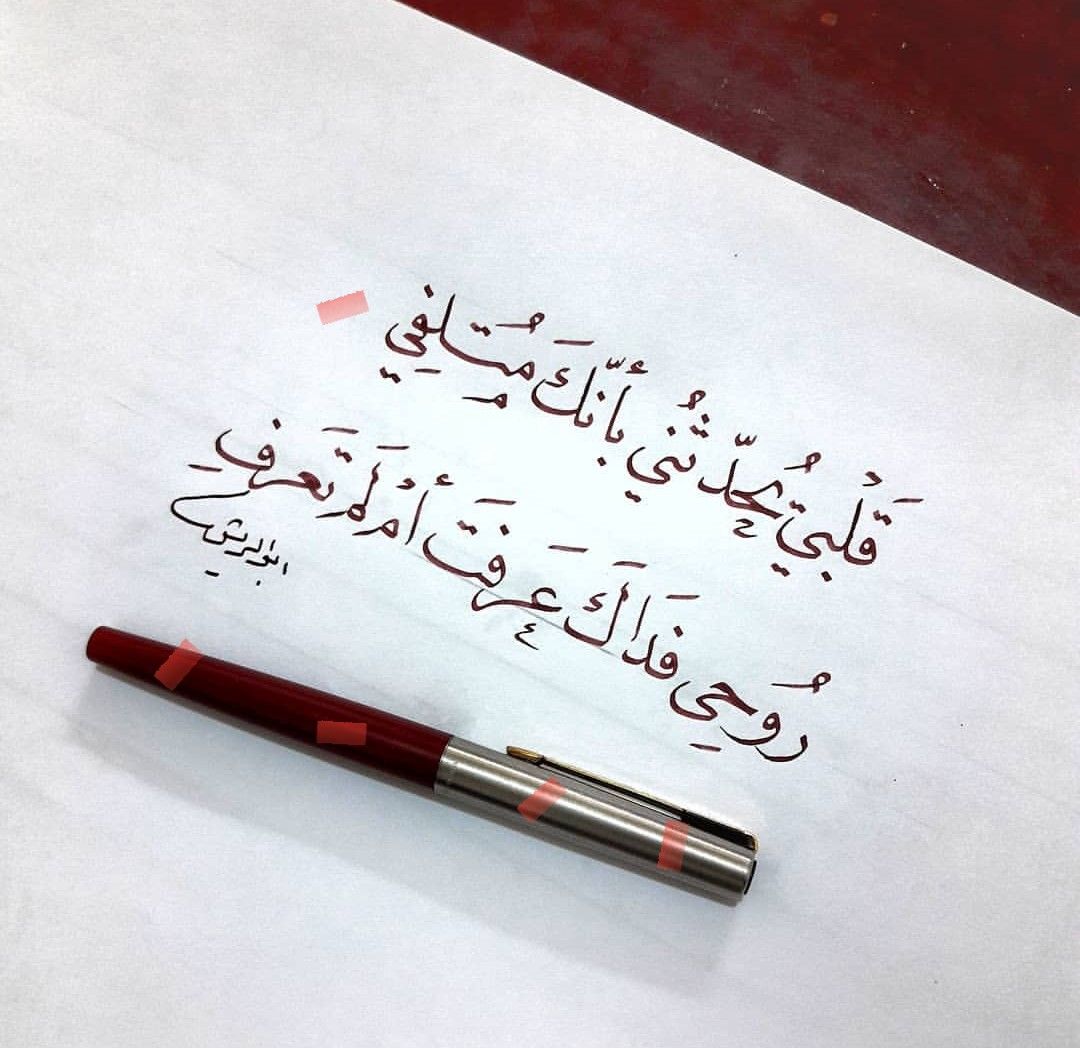 قَلْبي يُحَدّثُني بأَنّكَ مُتلِفِي
رُوحِي فَدَاكَ عَرفتَ أَمْ لَمْ تَعرفِ